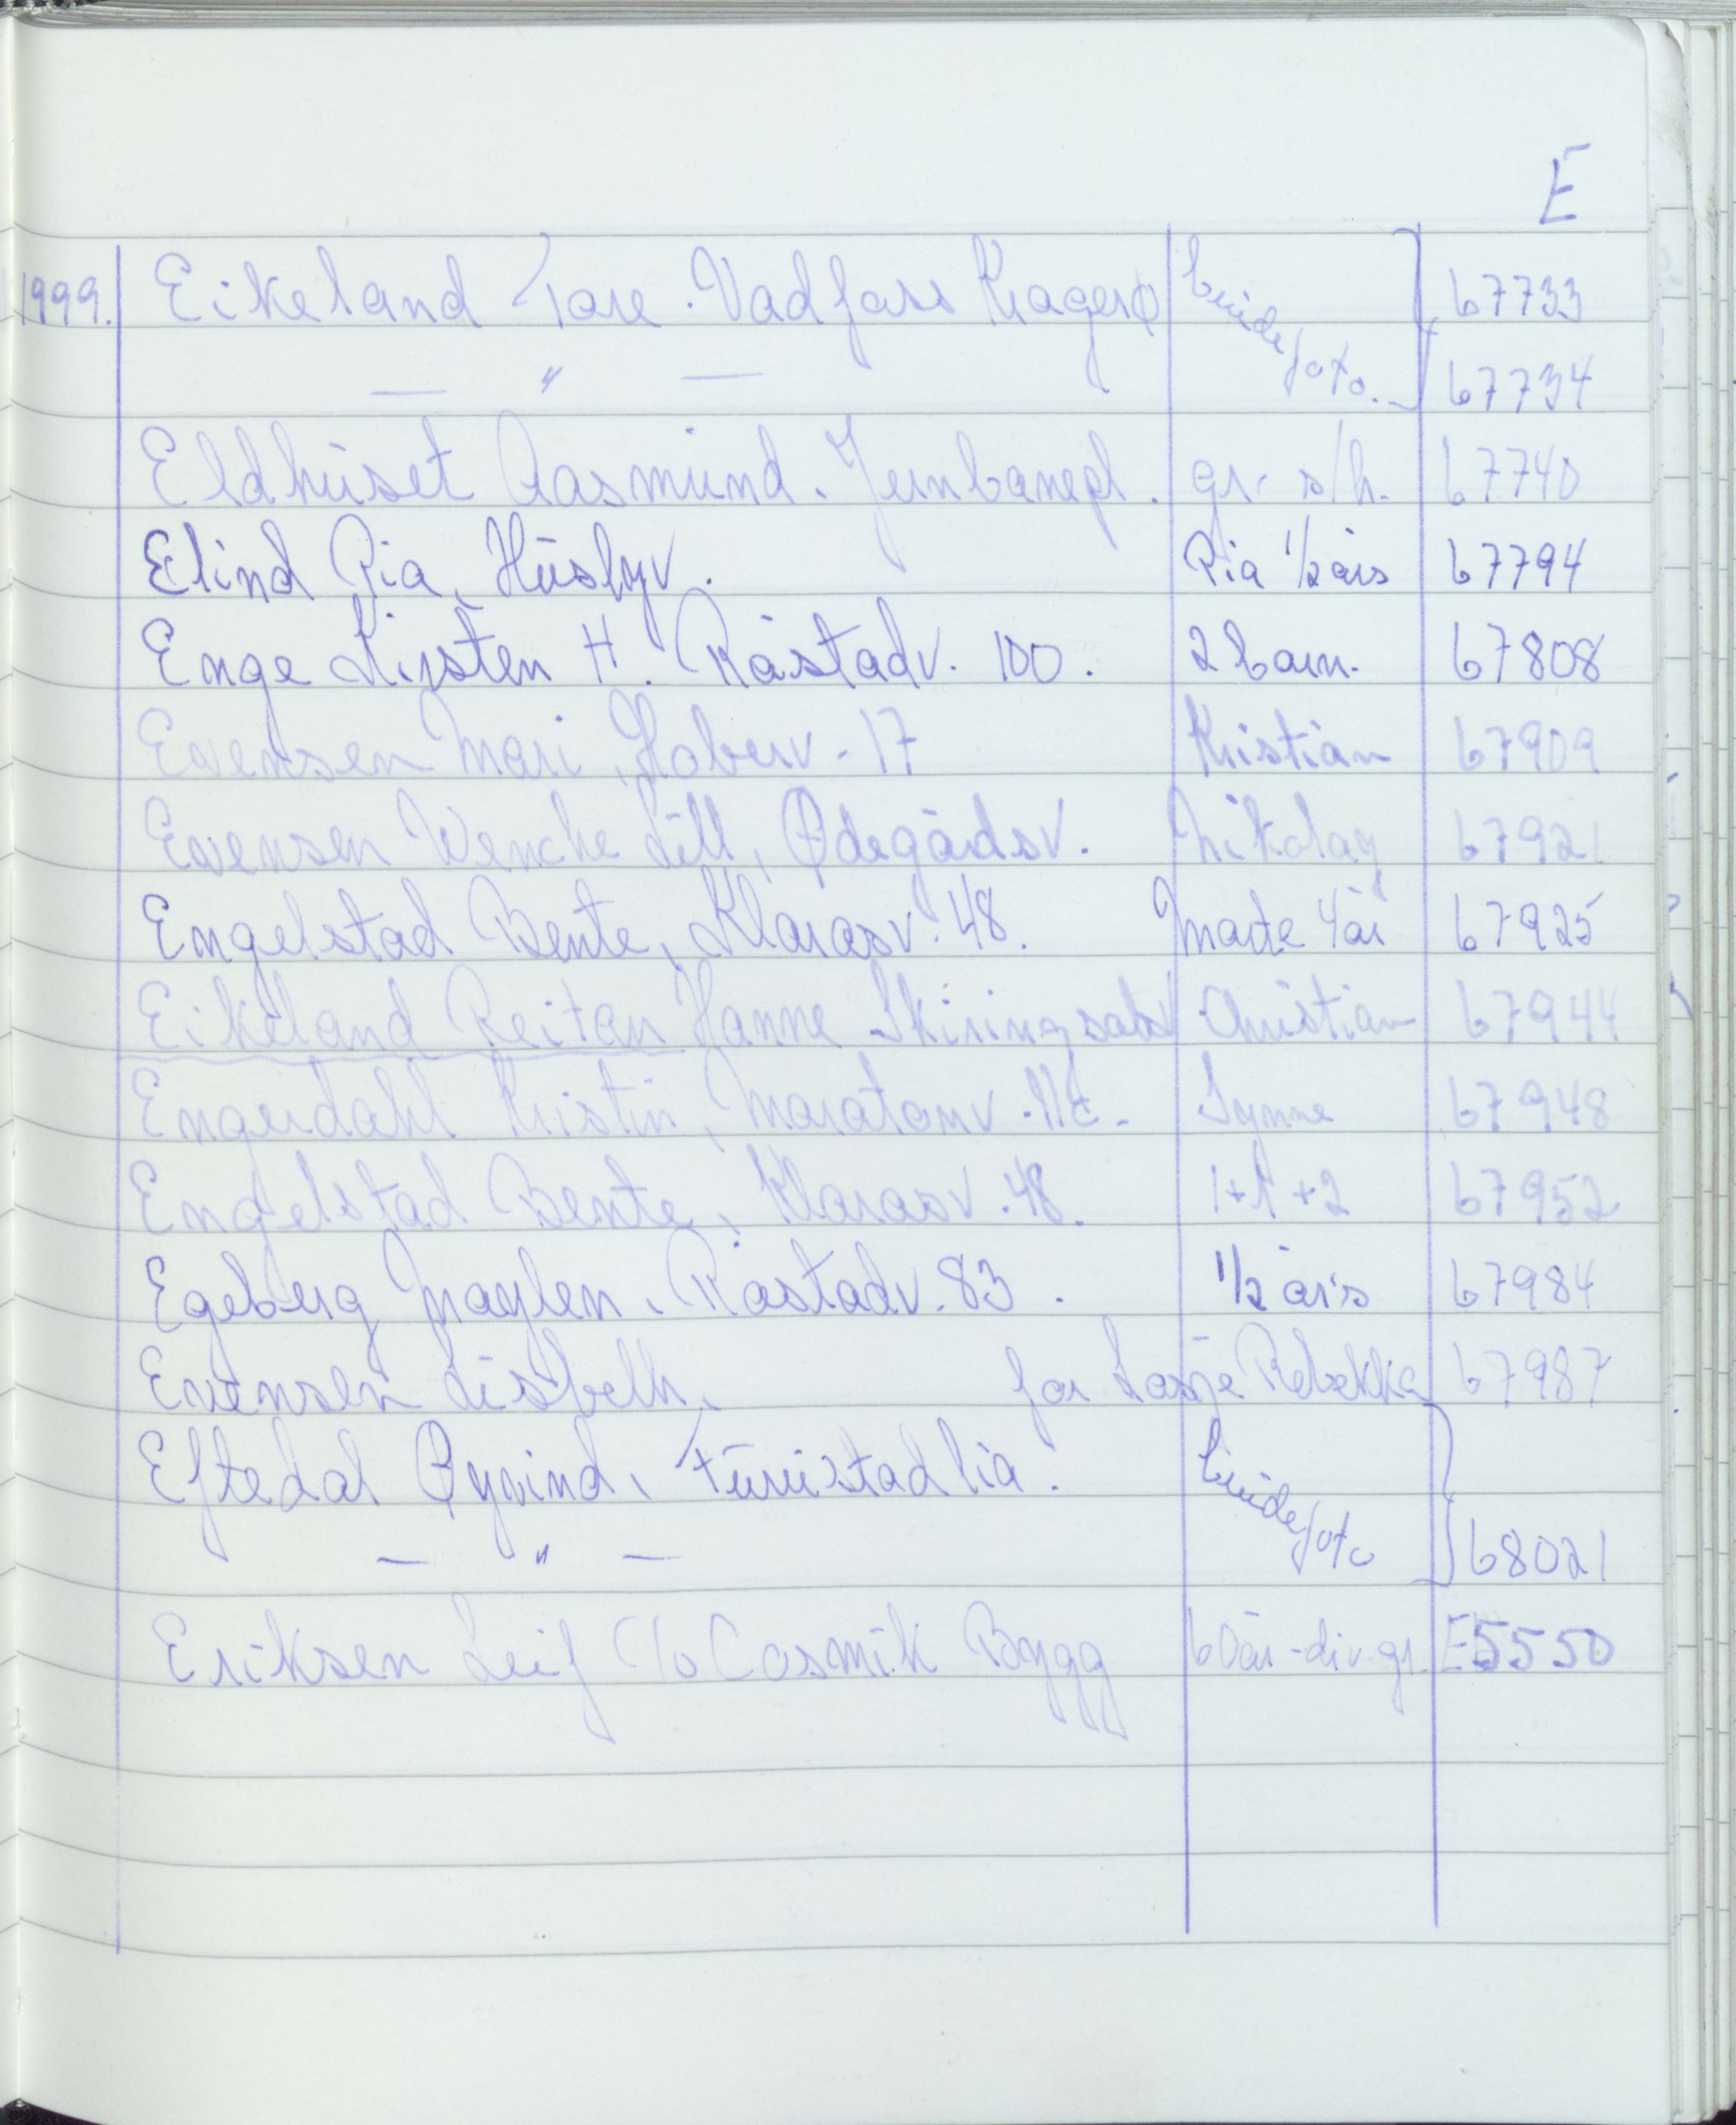 E
1999. Eikeland Tore. Vadfoss Kragerø brudefoto. 67733
— " — 67734
Eldhuset Aasmund. Jernbanepl. gr. s/h. 67740
Elind Pia, Husbyv. Pia 1/2 års 67794
Enge Kirsten H. Råstadv. 100. 2 barn. 67808
Evensen Mari, Haberv. 17 Kristian 67909
Evensen Wenche Lill, Ødegårdsv. Nikolay 67921
Engelstad Bente, Klarasv. 48. Marte 4 år 67925
Eikeland Reitan Hanne Skiringsalsv Christian 67944
Engerdahl Kristin, Maratonv. Synne 67948
Engelstad Bente, Klarasv. 48. 1+1+2 67952
Egeberg Maylen. Råstadv. 83. 1/2 års 67984
Evensen Lisbeth. for Rebekka 67987
Eftedal Øyvind, Furustadlia. brudefoto
— " — 68021
Eriksen Leif C/o Cosmik Bygg 60 år - div. gr. E5550